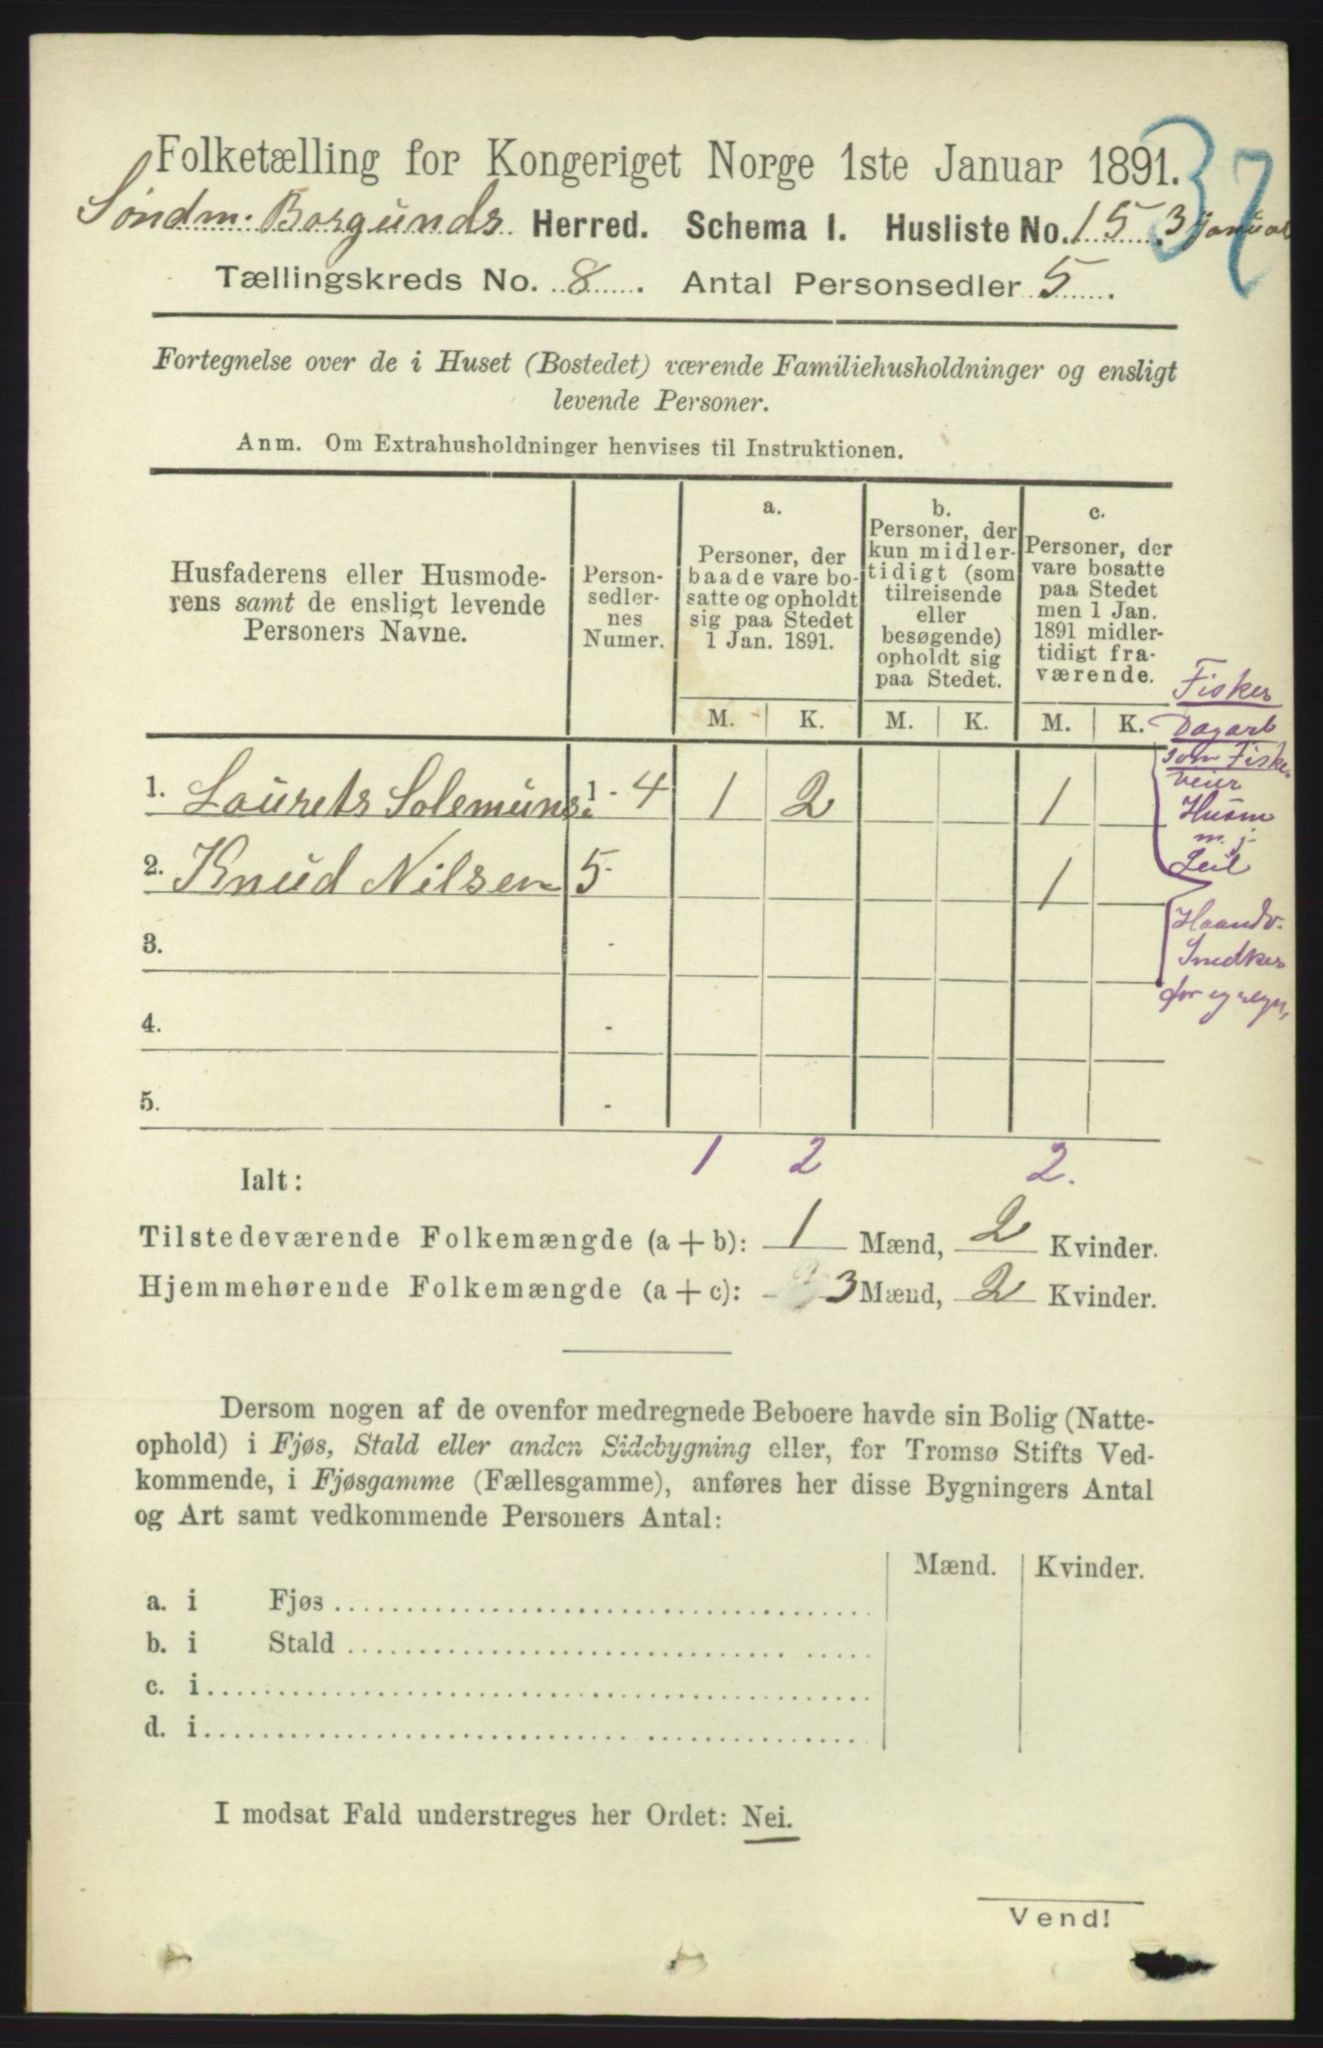 Folketælling for Kongeriget Norge 1ste Januar 1891.
37
Søndm. Borgunds Herred. Schema I. Husliste No. 15. 3 Januar
Tællingskreds No. 8. Antal Personsedler 5.
Fortegnelse over de i Huset (Bostedet) værende Familiehusholdninger og ensligt
levende Personer.
Anm. Om Extrahusholdninger henvises til Instruktionen.
Husfaderens eller Husmode-
rens samt de ensligt levende
Personers Navne.
Person-
sedler-
nes
Numer.
a.
Personer, der
baade vare bo-
satte og opholdt
sig paa Stedet
1 Jan. 1891.
b.
Personer, der
kun midler-
tidigt (som
tilreisende
eller
besøgende)
opholdt sig
paa Stedet.
c.
Personer, der
vare bosatte
paa Stedet
men 1 Jan.
1891 midler-
tidigt fra-
værende.
M. K. M. K. M. K.
Fisker
Dagarb
som Fisker
veier
Husm
m. j.
Leil
Haandv.
Snedker
for eg regn.
1. Laurets Solemuns. 1 - 4 1 2 1
2. Knud Nilsen 5 - 1
3. -
4. -
5. -
1 2 2.
Ialt:
Tilstedeværende Folkemængde (a + b): 1 Mænd, 2 Kvinder.
Hjemmehørende Folkemængde (a + c): 3 Mænd, 2 Kvinder.
Dersom nogen af de ovenfor medregnede Beboere havde sin Bolig (Natte-
ophold) i Fjøs, Stald eller anden Sidebygning eller, for Tromsø Stifts Ved-
kommende, i Fjøsgamme (Fællesgamme), anføres her disse Bygningers Antal
og Art samt vedkommende Personers Antal:
Mænd. Kvinder.
a. i Fjøs
b. i Stald
c. i
d. i
I modsat Fald understreges her Ordet: Nei.
Vend!